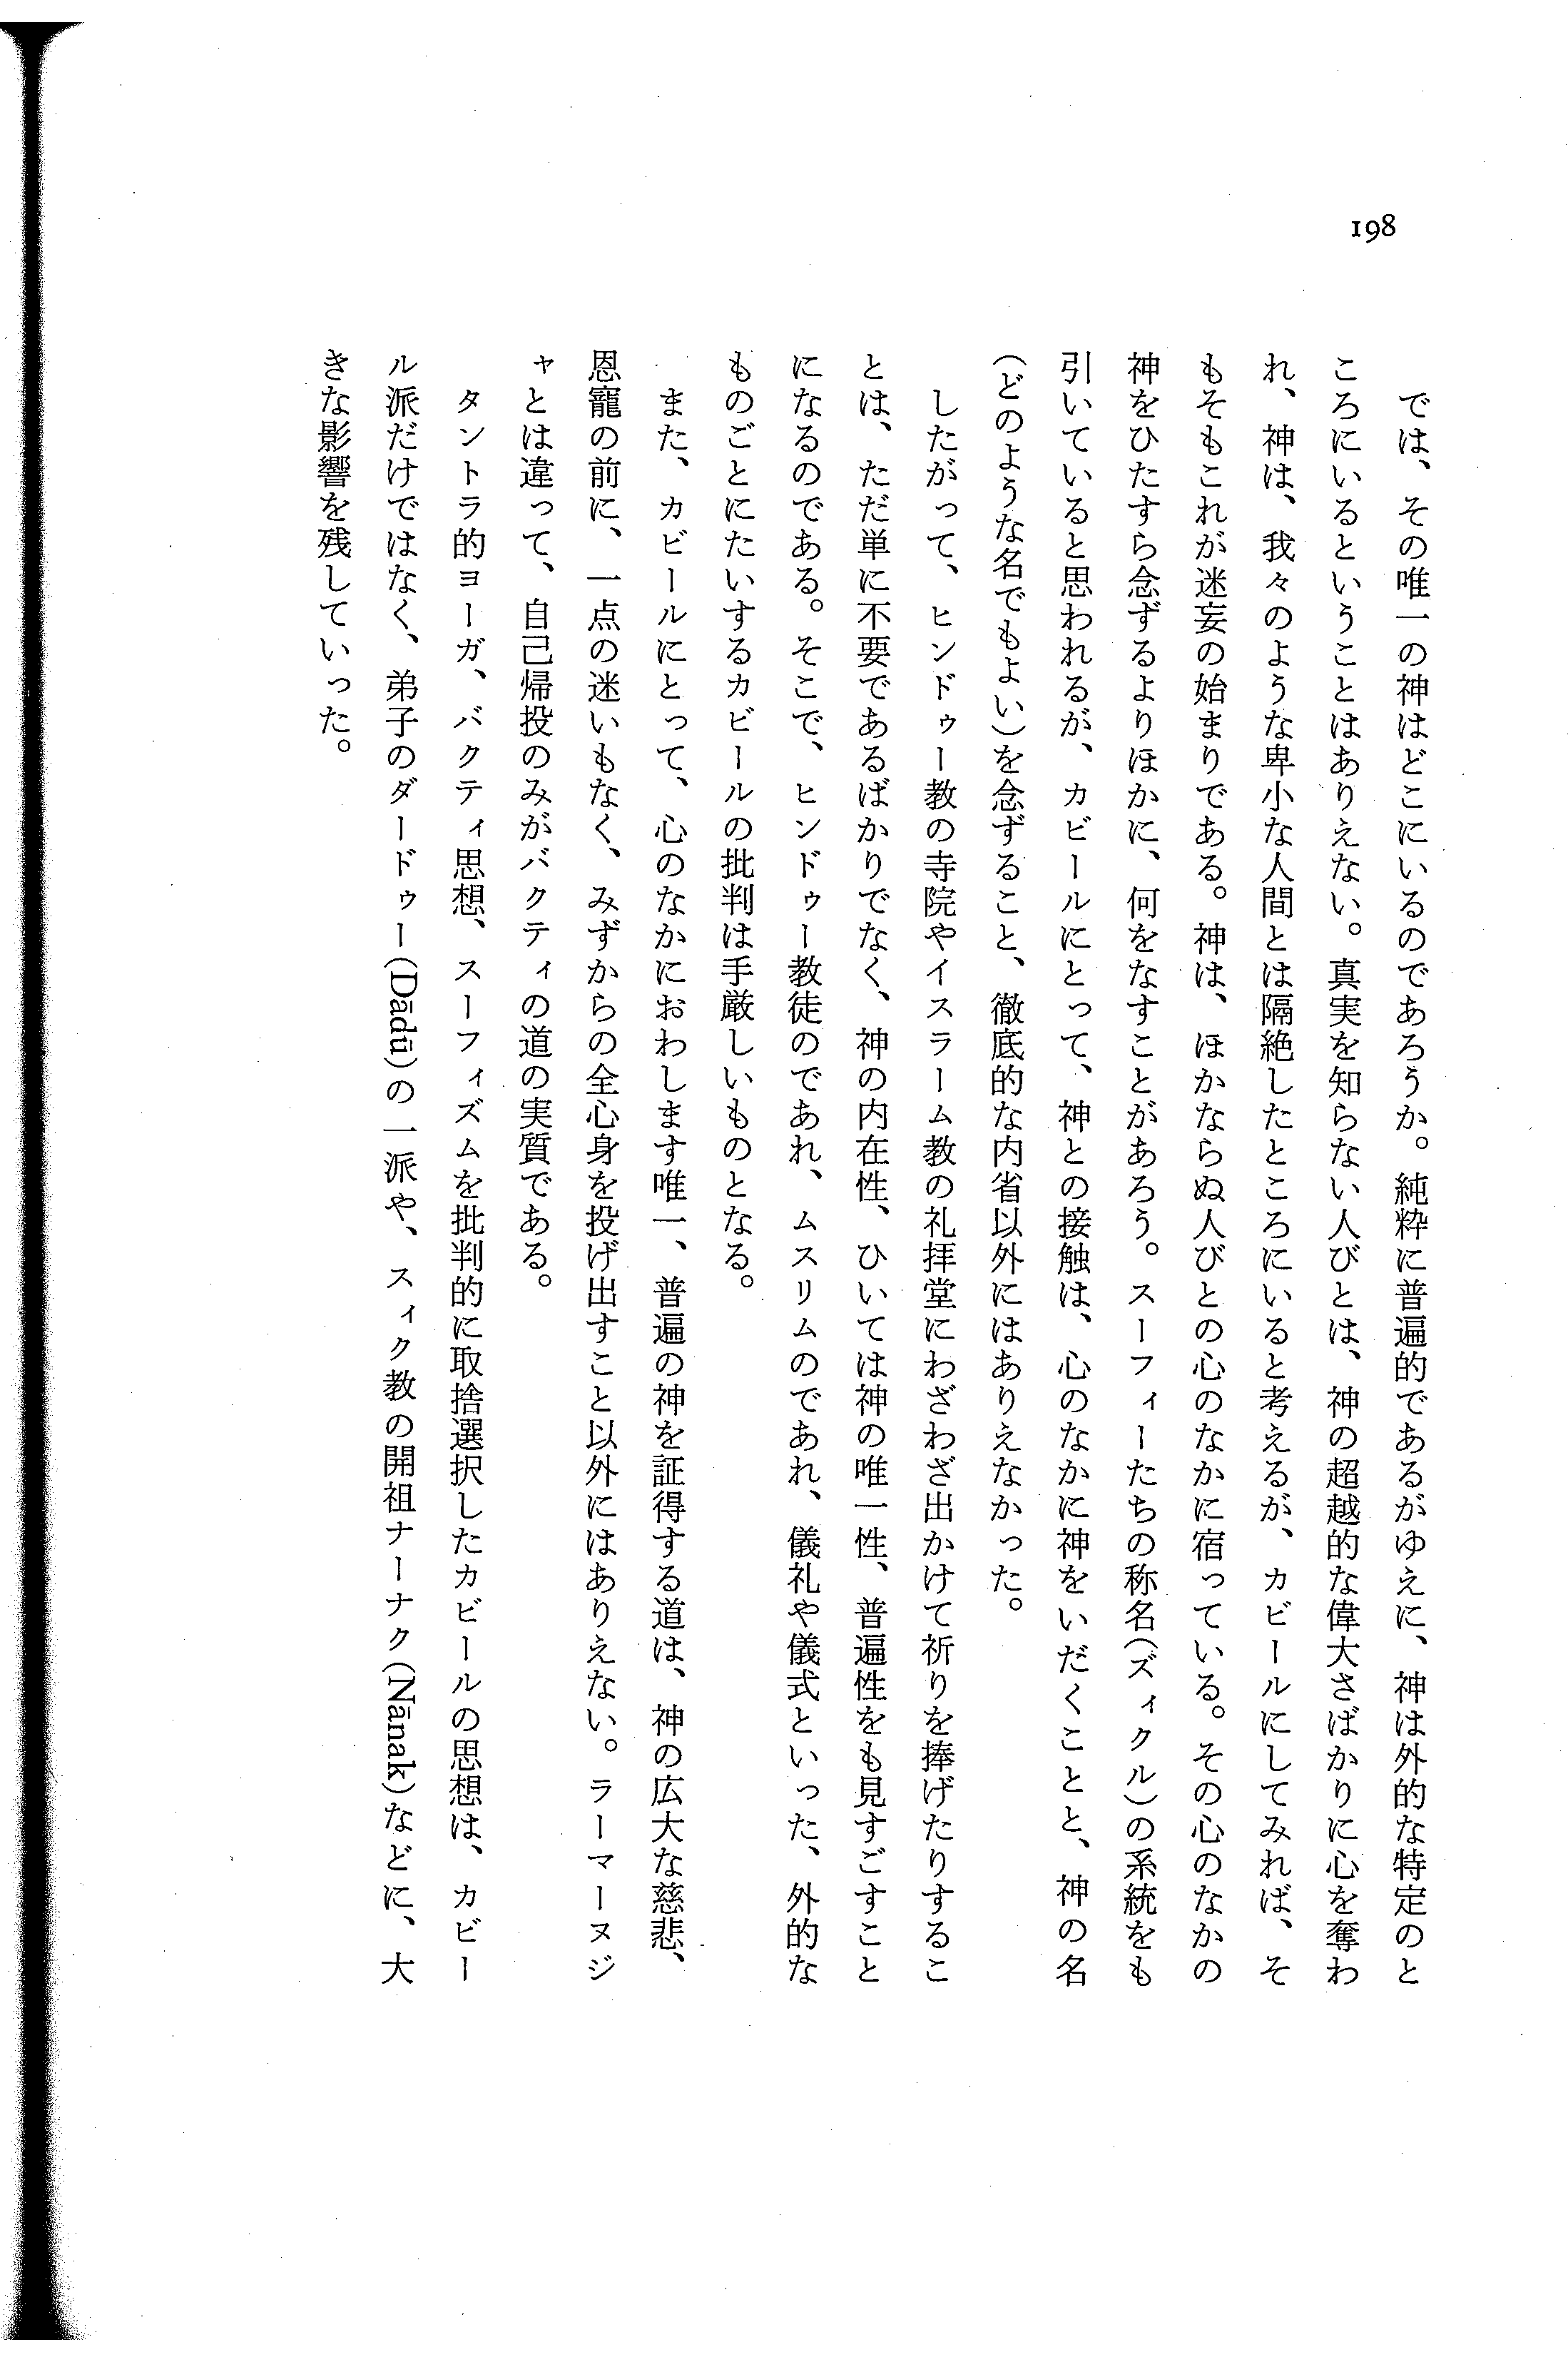 198
　では、その唯一の神はどこにいるのであろうか。純粋に普遍的であるがゆえに、神は外的な特定のと
ころにいるということはありえない。真実を知らない人びとは、神の超越的な偉大さばかりに心を奪わ
れ、神は、我々のような卑小な人間とは隔絶したところにいると考えるが、カビールにしてみれば、そ
もそもこれが迷妄の始まりである。神は、ほかならぬ人びとの心のなかに宿っている。その心のなかの
神をひたすら念ずるよりほかに、何をなすことがあろう。スーフィーたちの称名(ズィクル)の系統をも
引いていると思われるが、カビールにとって、神との接触は、心のなかに神をいだくことと、神の名
(どのような名でもよい)を念ずること、徹底的な内省以外にはありえなかった。
　したがって、ヒンドゥー教の寺院やイスラーム教の礼拝堂にわざわざ出かけて祈りを捧げたりするこ
とは、ただ単に不要であるばかりでなく、神の内在性、ひいては神の唯一性、普遍性をも見すごすこと
になるのである。そこで、ヒンドゥー教徒のであれ、ムスリムのであれ、儀礼や儀式といった、外的な
ものごとにたいするカビールの批判は手厳しいものとなる。
　また、カビールにとって、心のなかにおわします唯一、普遍の神を証得する道は、神の広大な慈悲、
恩寵の前に、一点の迷いもなく、みずからの全心身を投げ出すこと以外にはありえない。ラーマーヌジ
ャとは違って、自己帰投のみがバクティの道の実質である。
　タントラ的ヨーガ、バクティ思想、スーフィズムを批判的に取捨選択したカビールの思想は、カビー
ル派だけではなく、弟子のダードゥー(Dādū)の一派や、スィク教の開祖ナーナク(Nānak)などに、大
きな影響を残していった。